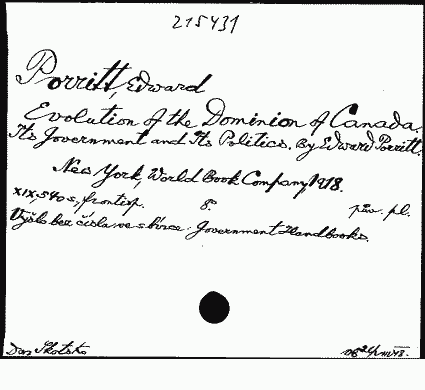 215431
Porritt, Edward
Evolution of the Dominion of Canada.
Its Government and Its Politics. By Edward Porritt.
New York, World Book Company, 1918.
XIX, 540 s., frontisp. 8°. pův. pl.
Vyšlo bez čísla ve sbírce: Government Handbooks.
Dar Skotsko